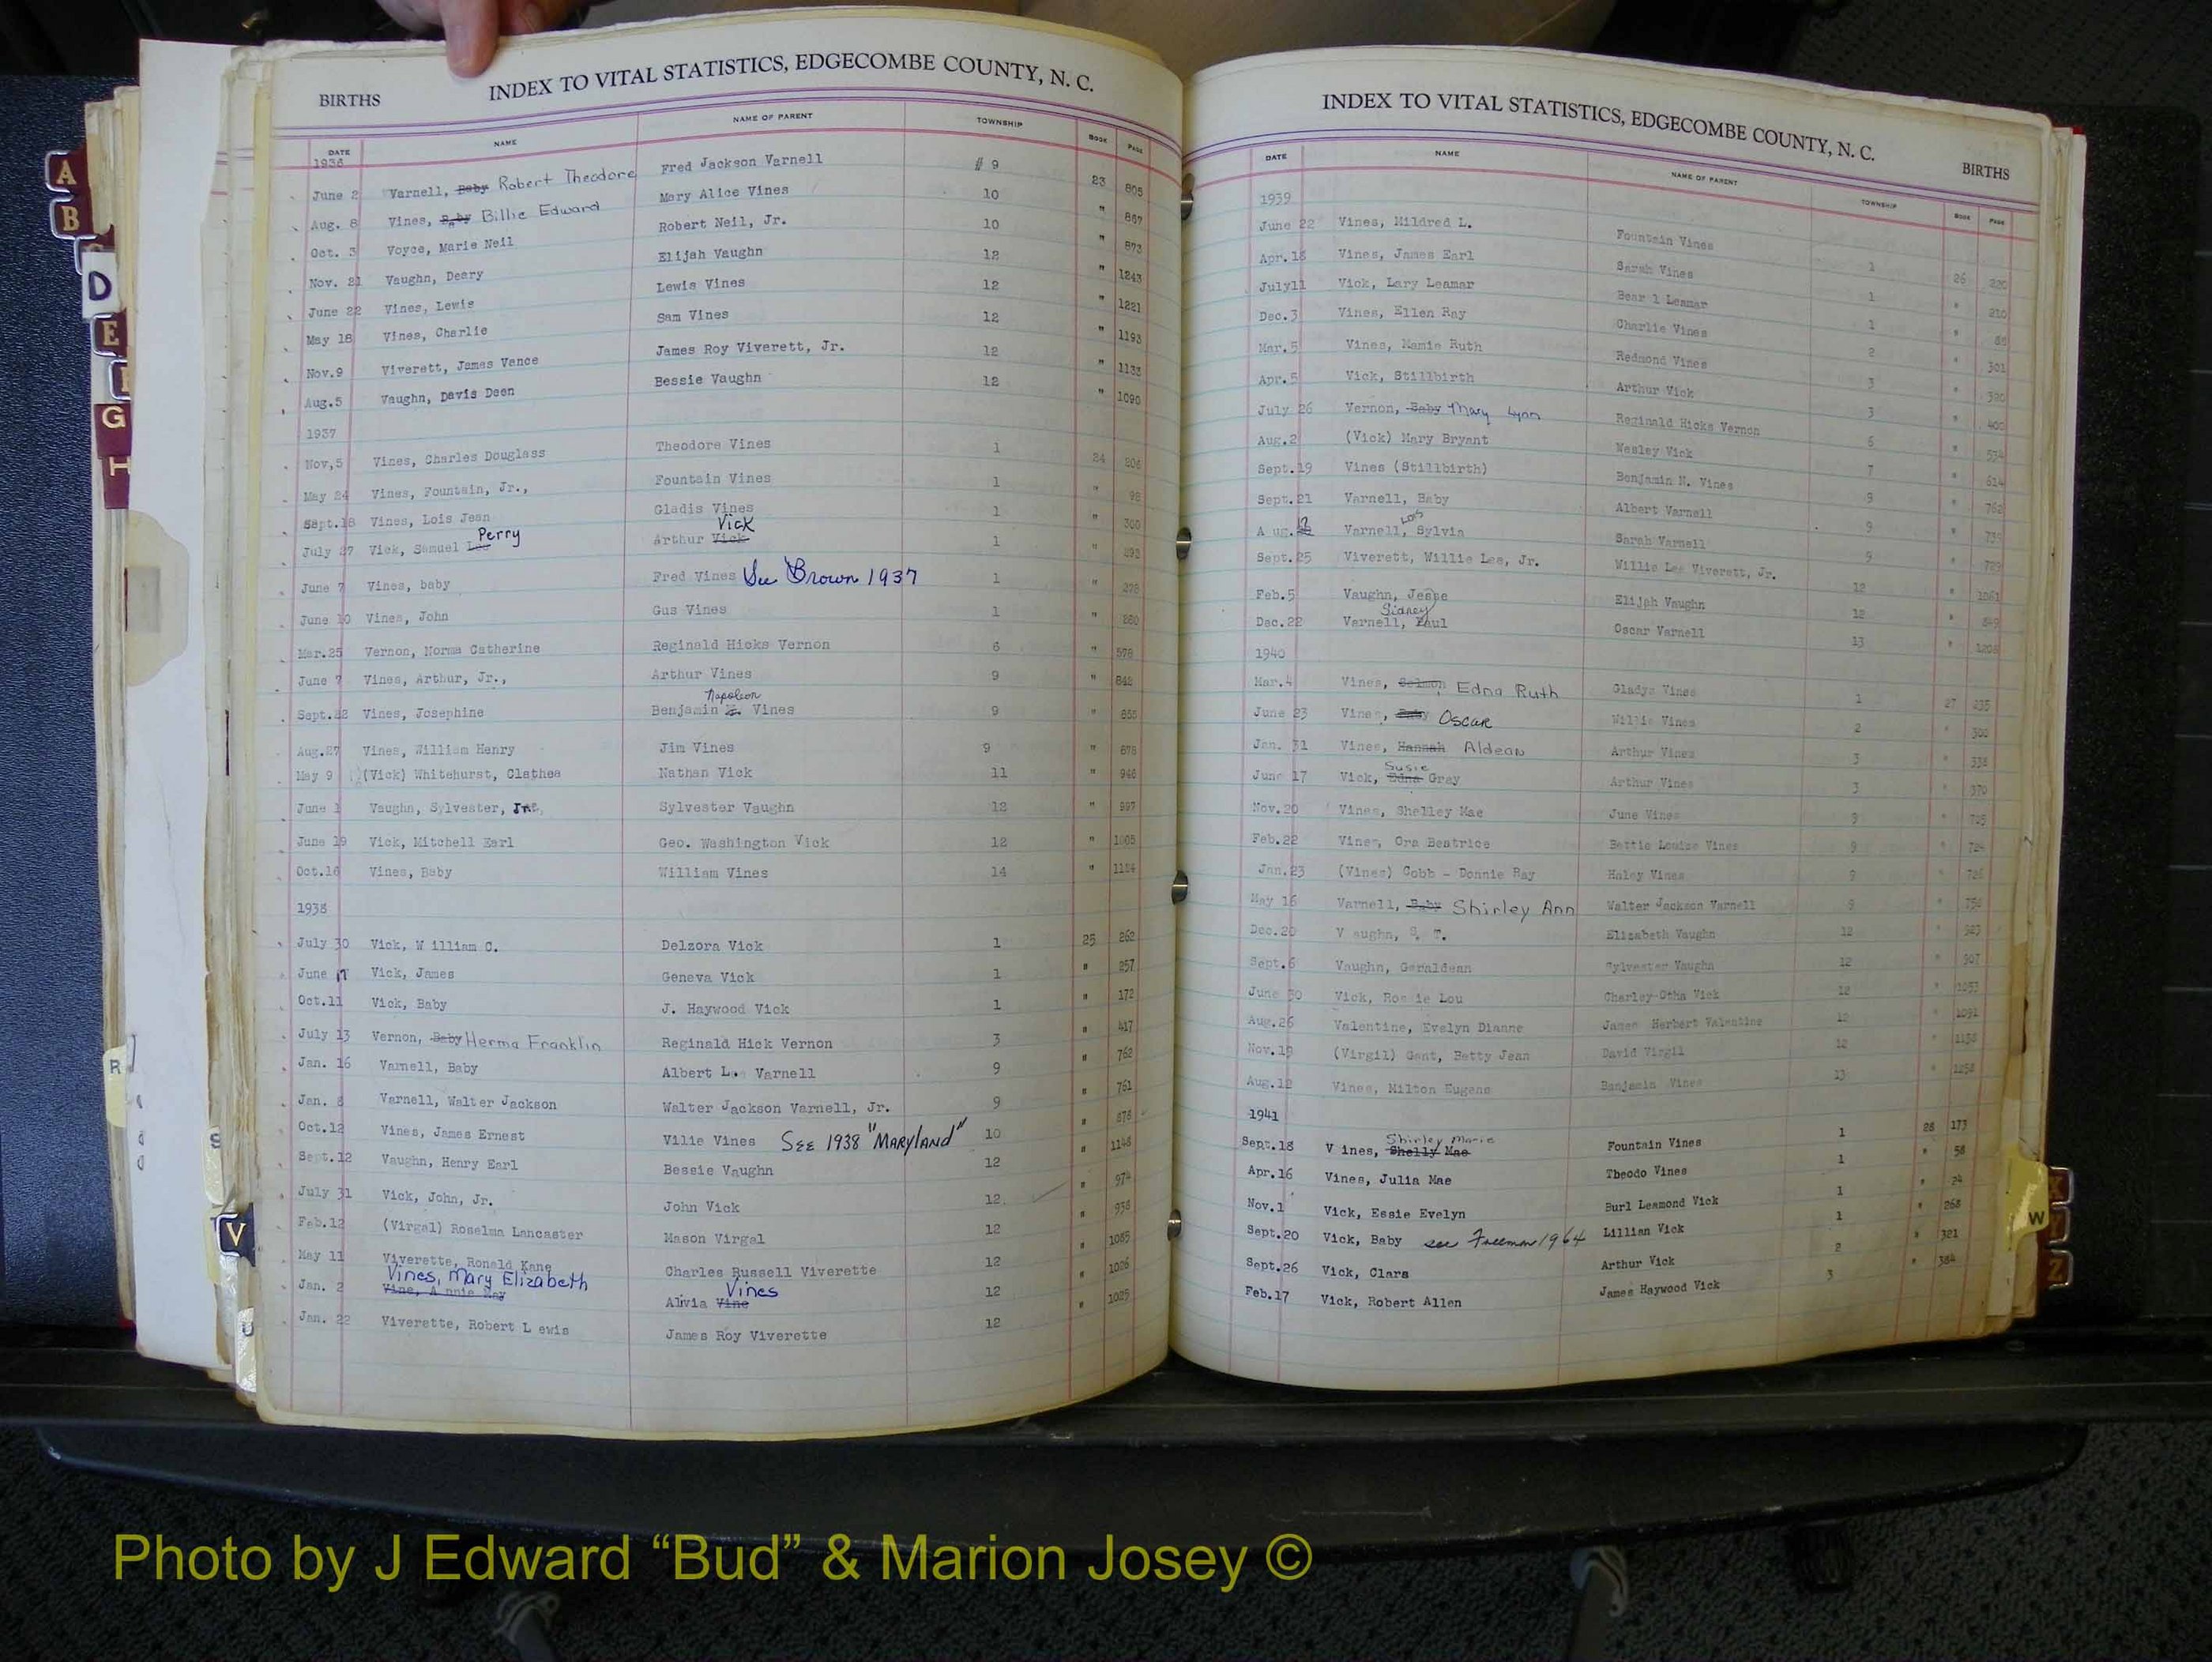 BIRTHS
INDEX TO VITAL STATISTICS, EDGECOMBE COUNTY, N. C.
DATE NAME NAME OF PARENT TOWNSHIP BOOK PAGE
1936
June 2 Varnell, Baby Robert Theodore Fred Jackson Varnell # 9 23 805
Aug. 8 Vines, Baby Billie Edward Mary Alice Vines 10 " 867
Oct. 3 Voyce, Marie Neil Robert Neil, Jr. 10 " 873
Nov. 21 Vaughn, Deary Elijah Vaughn 12 " 1243
June 22 Vines, Lewis Lewis Vines 12 " 1221
May 18 Vines, Charlie Sam Vines 12 " 1193
Nov.9 Viverett, James Vance James Roy Viverett, Jr. 12 " 1133
Aug.5 Vaughn, Davis Deen Bessie Vaughn 12 " 1090
1937
Nov,5 Vines, Charles Douglass Theodore Vines 1 24 206
May 24 Vines, Fountain, Jr., Fountain Vines 1 " 98
Sept.18 Vines, Lois Jean Gladis Vines 1 " 300
July 27 Vick, Samuel Lee Perry Arthur Vick Vick 1 " 292
June 7 Vines, baby Fred Vines See Brown 1937 1 " 278
June 10 Vines, John Gus Vines 1 " 280
Mar.25 Vernon, Norma Catherine Reginald Hicks Vernon 6 " 578
June 7 Vines, Arthur, Jr., Arthur Vines 9 " 842
Sept.22 Vines, Josephine Benjamin Napoleon Vines 9 " 855
Aug.27 Vines, William Henry Jim Vines 9 " 878
May 9 (Vick) Whitehurst, Clathea Nathan Vick 11 " 946
June 1 Vaughn, Sylvester, Jr., Sylvester Vaughn 12 " 997
June 19 Vick, Mitchell Earl Geo. Washington Vick 12 " 1005
Oct.16 Vines, Baby William Vines 14 " 1184
1938
July 30 Vick, W illiam C. Delzora Vick 1 25 262
June 17 Vick, James Geneva Vick 1 " 257
Oct.11 Vick, Baby J. Haywood Vick 1 " 172
July 13 Vernon, Baby Herma Franklin Reginald Hick Vernon 3 " 417
Jan. 16 Varnell, Baby Albert L. Varnell 9 " 762
Jan. 8 Varnell, Walter Jackson Walter Jackson Varnell, Jr. 9 " 761
Oct.12 Vines, James Ernest Vilie Vines SEE 1938 "MARYLAND" 10 " 878
Sept.12 Vaughn, Henry Earl Bessie Vaughn 12 " 1148
July 31 Vick, John, Jr. John Vick 12. " 974
Feb.12 (Virgal) Roselma Lancaster Mason Virgal 12 " 938
May 11 Viverette, Ronald Kane Charles Russell Viverette 12 " 1085
Jan. 2 Vine, A nnie May Vines, Mary Elizabeth Alivia Vine Vines 12 " 1026
Jan. 22 Viverette, Robert L ewis James Roy Viverette 12 " 1025
INDEX TO VITAL STATISTICS, EDGECOMBE COUNTY, N. C.
BIRTHS
DATE NAME NAME OF PARENT TOWNSHIP BOOK PAGE
1939
June 22 Vines, Mildred L. Fountain Vines 1 26 220
Apr.18 Vines, James Earl Sarah Vines 1 " 210
July11 Vick, Lary Leamar Bear l Leamar 1 " 88
Dec.3 Vines, Ellen Ray Charlie Vines 2 " 301
Mar.5 Vines, Mamie Ruth Redmond Vines 3 " 390
Apr.5 Vick, Stillbirth Arthur Vick 3 " 400
July 26 Vernon, Baby Mary Lynn Reginald Hicks Vernon 6 " 534
Aug.2 (Vick) Mary Bryant Wesley Vick 7 " 614
Sept.19 Vines (Stillbirth) Benjamin N. Vines 9 " 762
Sept.21 Varnell, Baby Albert Varnell 9 "
Aug. 12 Varnell, Lois Sylvia Sarah Varnell 9 " 729
Sept.25 Viverett, Willie Lee, Jr. Willie Lee Viverett, Jr. 12 " 1061
Feb.5 Vaughn, Jesse Elijah Vaughn 12 " 849
Dec.22 Varnell, Paul Sidney Oscar Varnell 13 " 1208
1940
Mar.4 Vines, Edna Ruth Gladys Vines 1 27 235
June 23 Vines, Baby Oscar Willie Vines 2 " 300
Jan. 31 Vines, Hannah Aldean Arthur Vines 3 " 338
June 17 Vick, Edna Susie Gray Arthur Vines 3 " 370
Nov.20 Vines, Shelley Mae June Vines 9 " 725
Feb.22 Vines, Ora Beatrice Bettie Louise Vines 9 " 724
Jan.23 (Vines) Cobb - Donnie Ray Haley Vines 9 " 726
May 16 Varnell, Baby Shirley Ann Walter Jackson Varnell 9 " 754
Dec.20 V aughn, S. T. Elizabeth Vaughn 12 " 923
Sept.6 Vaughn, Geraldean Sylvester Vaughn 12 " 907
June 30 Vick, Ros ie Lou Charley-Otha Vick 12 " 1053
Aug.26 Valentine, Evelyn Dianne James Herbert Valentine 12 " 1091
Nov.19 (Virgil) Gant, Betty Jean David Virgil 12 " 1158
Aug.12 Vines, Milton Eugene Benjamin Vines 13 " 1258
1941
Sept.18 V ines, Shelly Mae Shirley Marie Fountain Vines 1 28 173
Apr.16 Vines, Julia Mae Theodo Vines 1 " 58
Nov.1 Vick, Essie Evelyn Burl Leamond Vick 1 " 24
Sept.20 Vick, Baby see Freeman 1964 Lillian Vick 1 " 268
Sept.26 Vick, Clara Arthur Vick 2 " 321
Feb.17 Vick, Robert Allen James Haywood Vick 3 " 384
A
B
D
E
G
H
R
S
U
V
W
Y
Z
Photo by J Edward “Bud” & Marion Josey ©